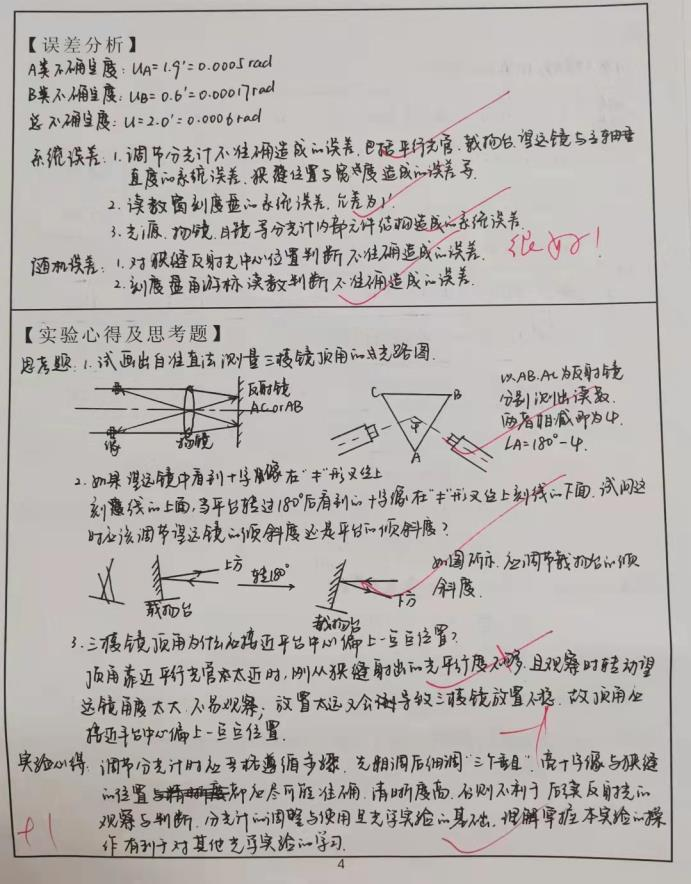 【误差分析】
A类不确定度：UA=1.9'=0.0005rad
B类不确定度：UB=0.6'=0.00017rad
总不确定度：U=2.0'=0.0006rad
系统误差：1.调节分光计不准确造成的误差，包括平行光管、载物台、望远镜与主轴垂
直度的系统误差，狭缝位置与宽度造成的误差等.
2.读数窗刻度盘的系统误差，允差为1'.
3.光源、物镜、目镜等分光计内部元件结构造成的系统误差
很好！
随机误差：1.对狭缝反射光中心位置判断不准确造成的误差.
2.刻度盘角游标读数判断不准确造成的误差.
【实验心得及思考题】
思考题：1.试画出自准直法测量三棱镜顶角的光路图.
反射镜
AC or AB
像
物镜
C
B
φ
A
以AB.AC为反射镜
分别测出读数.
两者相减即为φ.
∠A=180°-φ.
2.如果望远镜中看到十字像在"十"形叉丝上
刻线的上面,当平台转过180°后看到的十字像在"十"形叉丝上刻线的下面,试问这
时应该调节望远镜的倾斜度还是平台的倾斜度?
上方
载物台
转180°
下方
载物台
如图所示,应调节载物台的倾
斜度.
3.三棱镜顶角为什么应接近平台中心偏上一点点位置?
顶角靠近平行光管太近时,则从狭缝射出的光平行度不够,且观察时转动望
远镜角度太大,不易观察;放置太远又会导致三棱镜放置不稳.故顶角应
接近平台中心偏上一点点位置.
实验心得:调节分光计时应严格遵循步骤,先粗调后细调"三个垂直",高十字像与狭缝
的位置都应尽可能准确,清晰度高,否则不利于后续反射光的
观察与判断.分光计的调整与使用是光学实验的基础,理解掌握本实验的操
作有利于对其他光学实验的学习.
+1
4